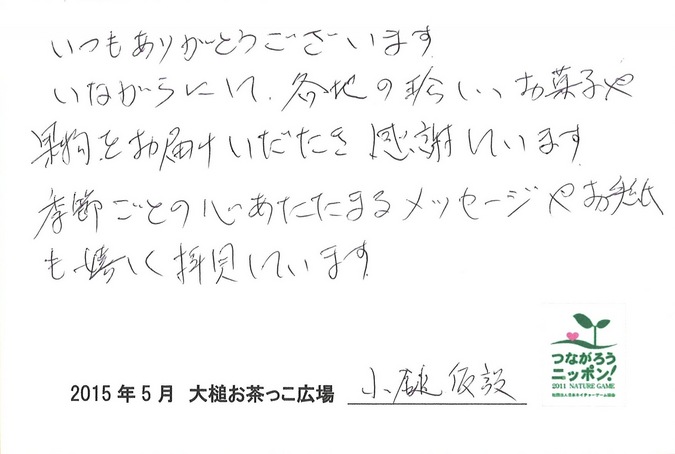 いつもありがとうございます
いながらにして、各地の珍しい、お菓子や
果物をお届けいだたき 感謝しています
季節ごとの心あたたまるメッセージやお手紙
も嬉しく拝見しています
2015年5月 大槌お茶っこ広場 小鎚仮設
つながろう
ニッポン!
2011 NATURE GAME
社団法人日本ネイチャーゲーム協会